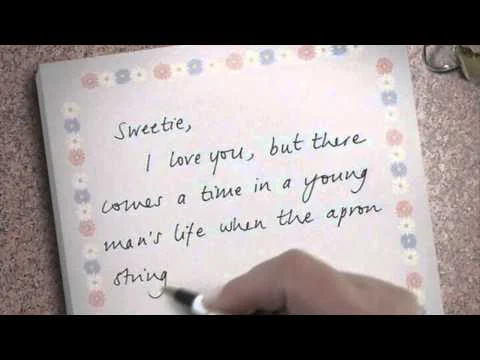 Sweetie,
I love you, but there
comes a time in a young
man's life when the apron
string